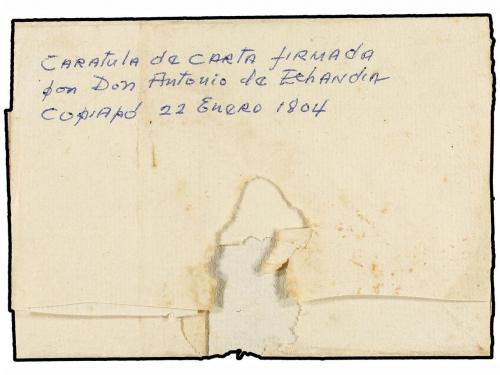 Caratula de carta firmada
por Don Antonio de Echandia
Copiapó 22 Enero 1804